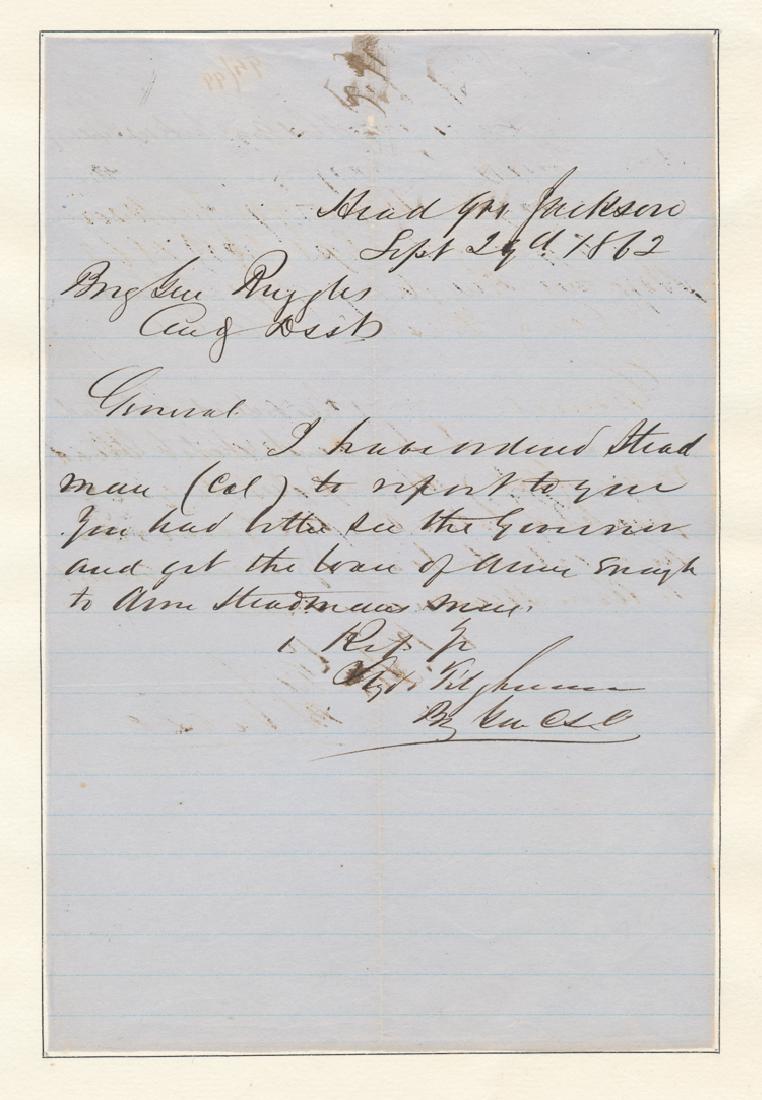 Head Qrs Jackson
Sept 29d. 1862
Brig Gen Ruggles
Comg Dist
General
I have ordered Stead
man (Col) to report to you
You had better see the Governor
and get the loan of Arms Enough
to Arm Steadmans men.
Resp Yr
Lloyd Tilghman
Brg Gen C.S.A